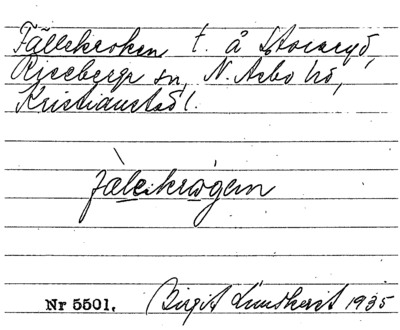 Fällekroken t. å Storaryd,
Riseberga sn, N. Åsbo hd,
Kristianstad l.
fàlekrågem
Nr 5501. Birgit Lundkvist 1935